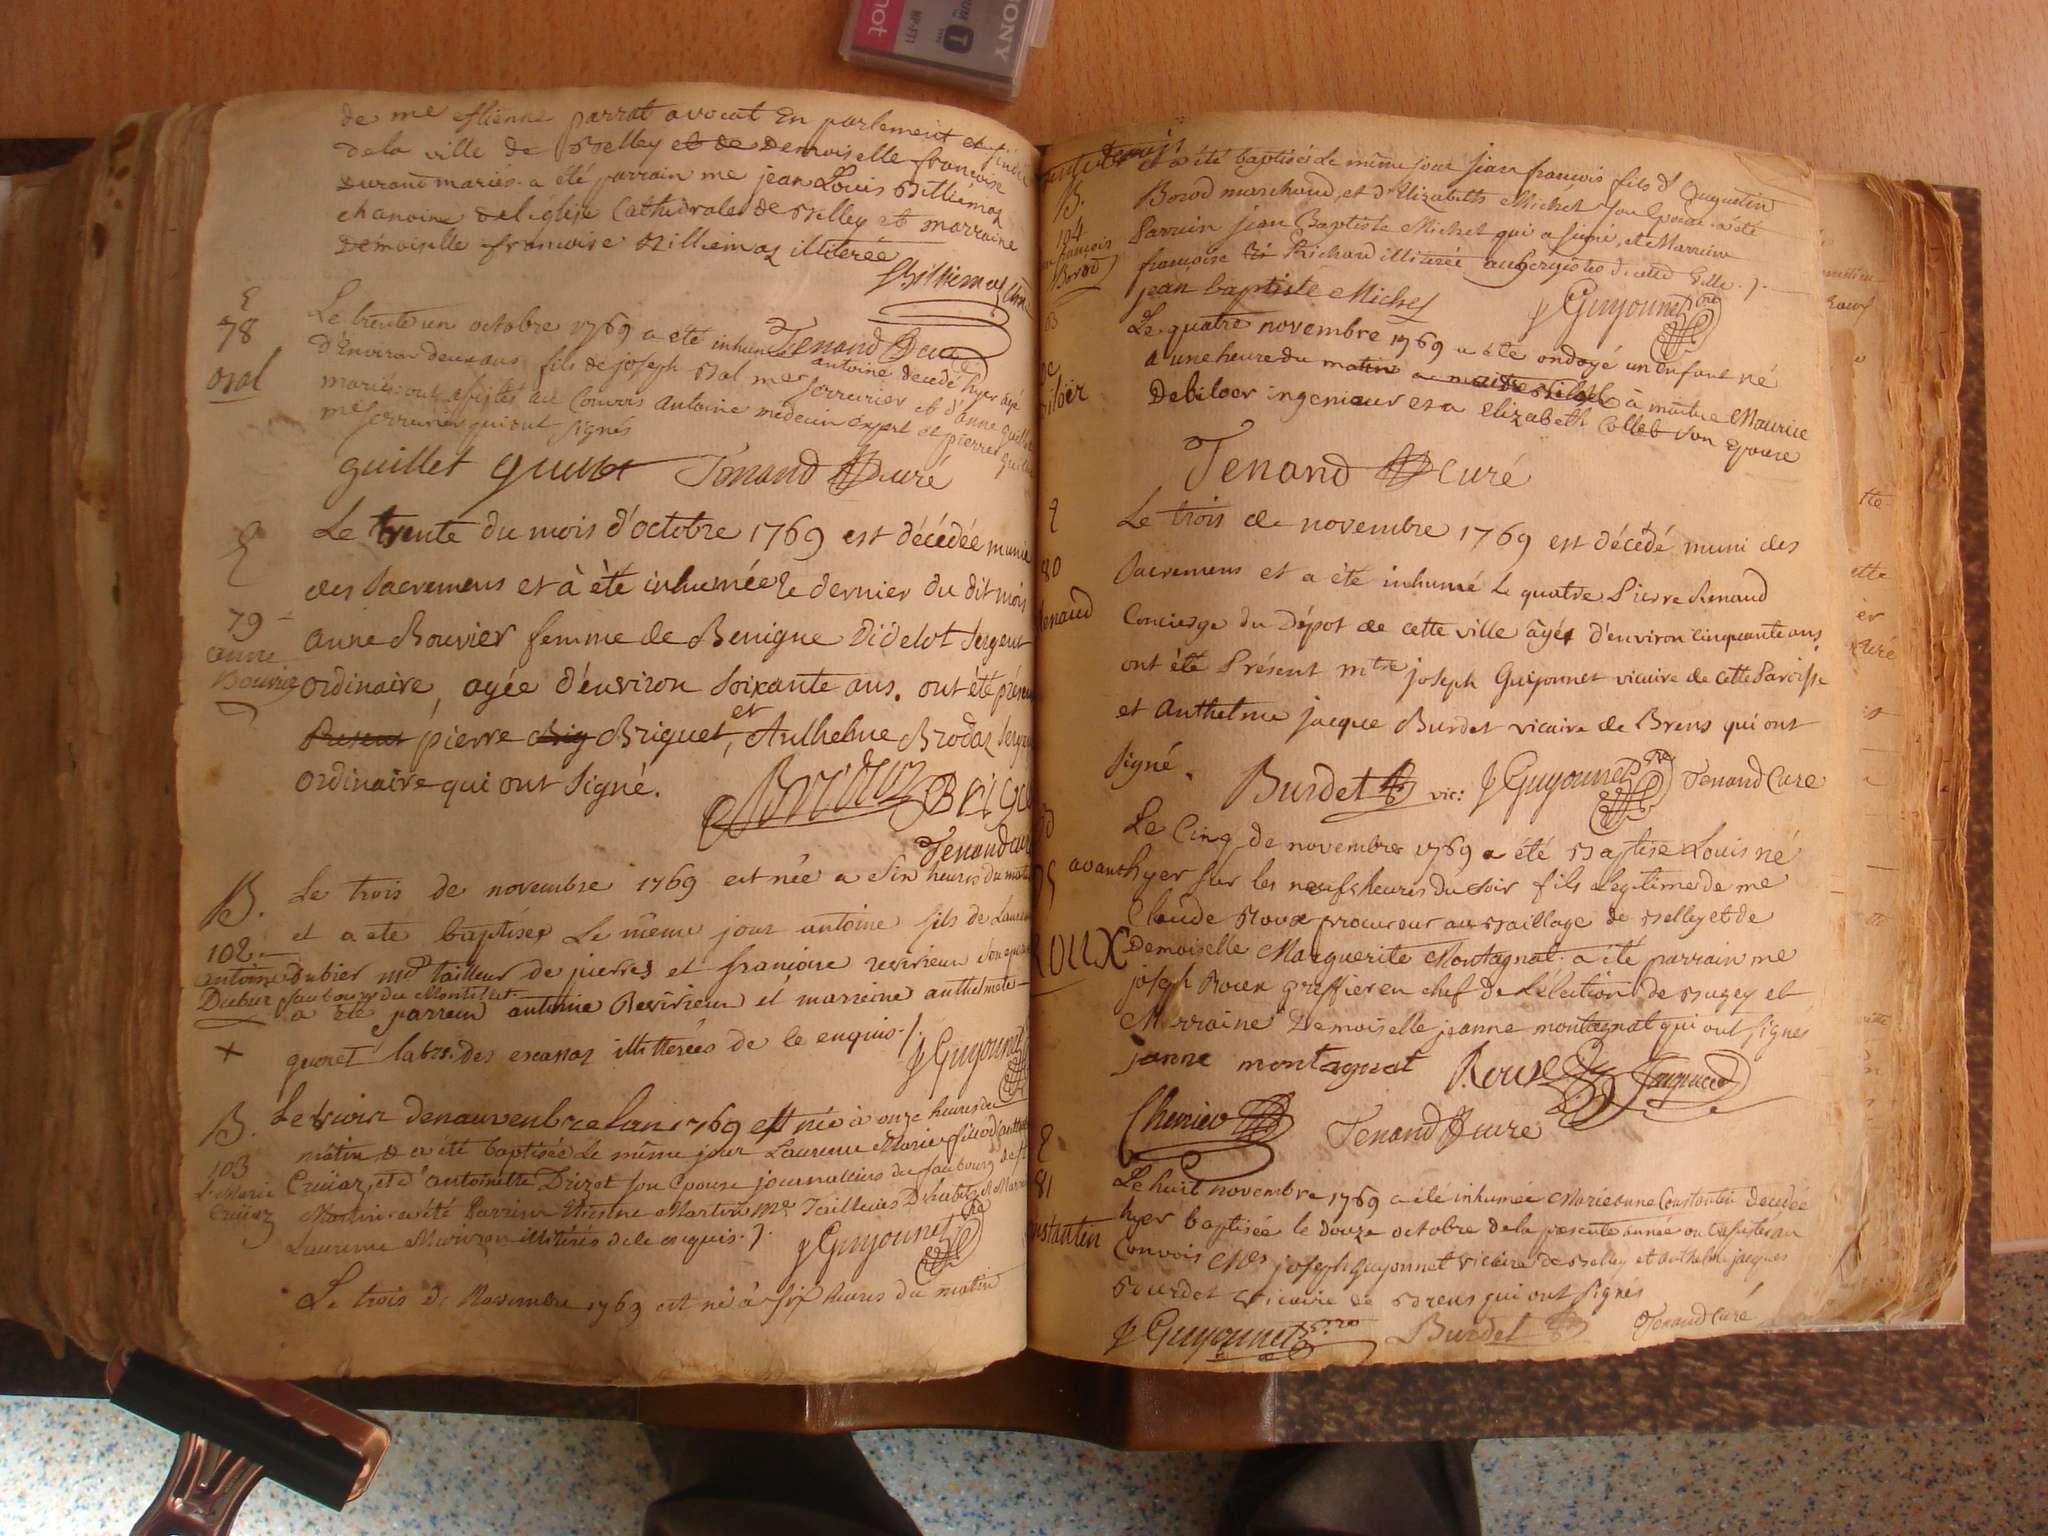 SONY
de me estienne parrat avocat En parlement et sindic
dela ville de Belley et de Demoiselle francoise
Durand mariés. a été parrain me jean Louis Billiémaz
chanoine del'église Cathédrale de Belley et marraine
Démoiselle francoise Billiémaz illiterée
Billiemaz
E
78
Bal
Le trente un octobre 1769 a eté inhumé antoine decedé hyer agé
Tenand Curé
d'Environ deux ans fils de joseph Bal me serrurier et d'anne guillet
mariés: ont assistés au Convois Antoine médecin Expert et pierre guillet
me serrurier qui ont signés
guillet guillet Tenand Curé
E
79
anne
Bouvier
Le trente du mois d'octobre 1769 est décédée munie
des Sacremens et à été inhumée le dernier du dit mois
anne Bouvier femme de Benigne Didelot Sergent
ordinaire, agée d'environ soixante ans. ont été présen
Present pierre Brig Briguet, et Anthelme Brodaz Serge
ordinaire qui ont signé.
Brodaz Brigu
Tenand cur
B.
102.
antoine
Dubier
Le trois de novembre 1769 est née a six heures du matin
et a eté baptisée Le même jour antoine fils de Lauren
Dubier md tailleur de pierres et francoise revirieux son epouse
faubourg du Montillet.
a été parrein antoine Revirieux et marreine anthelmete
quoret labr. des escassaz illitterées de ce enquis ./.
J Guyonnet
+
B.
103
Le trois denauvenbre lan 1769 est née à onze heures du
matin & a été baptisée le même jour Laurence Marie fille d'anthel
Cruiaz, et d'antoinette Drizet son Epouse journaliers du faubourg de St
Martin. a été Parrain Etienne Martin Mr Tailleur D'habits & Marraine
illitérés de ce enquis. ).
J Guyonnet
Le trois de Novembre 1769 est né à six heures du matin
B.
104
françois
Borod
et a été baptisé Le même jour jean françois fils d'Augustin
Borod marchand, et d'Elizabeth Michel son Epouse. a été
Parrain jean Baptiste Michel qui a signé, et Marraine
françoise Richard illiterée aubergistes de cette Ville. ).
jean baptiste Michel J Guyonnet
Le quatre novembre 1769 a été ondoyé un enfant né
a une heure du matin a maitre à maitre Maurice
Debiloer ingenieur et a elizabeth Colleb son Epouse
Tenand Curé
E
80
Renaud
Le trois de novembre 1769 est décédé muni des
Sacremens et a été inhumé le quatre Pierre Renaud
Concierge du Dépot de cette ville âgé d'environ cinquante ans,
ont été Présent mtre joseph Guyonnet vicaire de cette Paroisse
et Anthelme jacque Burdet vicaire de Brens qui ont
signé.
Burdet vic: J Guyonnet Tenand Curé
ROUX
Le Cinq de novembre 1769 a été Baptisé Louis né
avanthyer sur les neufs heures du soir fils Legitime de me
Claude Roux procureur au Baillage de Belley et de
Demoiselle Marguerite Montagnat. a été parrain me
joseph Roux greffier en chef de L'élection de Bugey et
Marraine Demoiselle jeanne montagnat qui ont signés
janne montagnat Roux
Tenand Curé
E
81
nstantin
Le huit novembre 1769 a été inhumée Marieanne Constantin decedée
hyer baptisée le douze octobre de la présente année ont assistés au
Convois Mes joseph Guyonnet Vicaire de Belley et anthelme jacques
Burdet Vicaire de Brens qui ont signés
J Guyonnet Burdet Tenand Curé